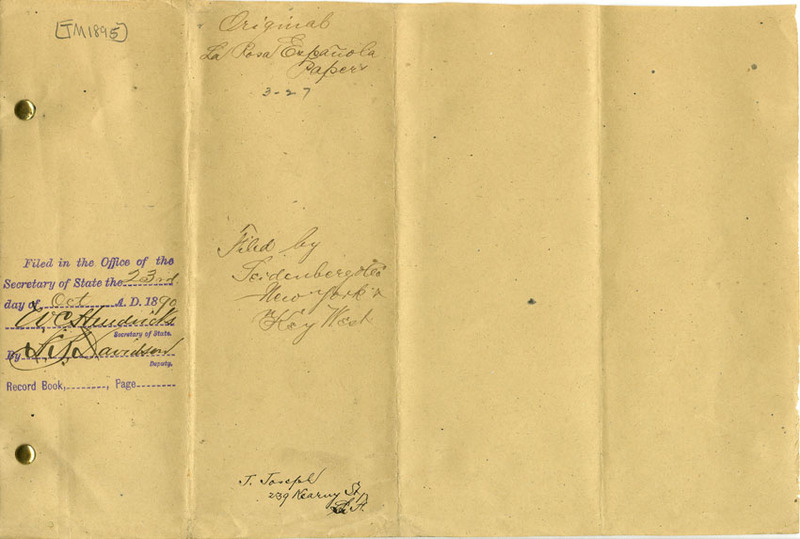 [TM1895]
Original
La Rosa Española
Papers
3-27
Filed in the Office of the
Secretary of State the 23rd
day of Oct A. D. 1890
W C Hendricks
Secretary of State.
By Davidson
Deputy.
Record Book,........, Page........
Filed by
Seidenberg & Co
New York &
Key West
J. Joseph
239 Kearny St,
S. F.